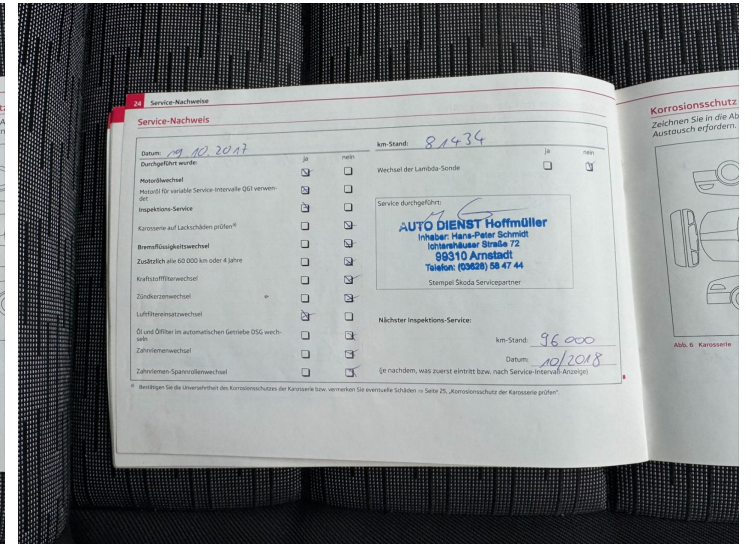 24 Service-Nachweise
Service-Nachweis
Datum: 19.10.2017
km-Stand: 81434
Durchgeführt wurde:
ja nein
ja nein
Motorölwechsel
Motoröl für variable Service-Intervalle QG1 verwen-
det
Inspektions-Service
Karosserie auf Lackschäden prüfen a)
Bremsflüssigkeitswechsel
Zusätzlich alle 60 000 km oder 4 Jahre
Kraftstofffilterwechsel
Zündkerzenwechsel
Luftfiltereinsatzwechsel
Öl und Ölfilter im automatischen Getriebe DSG wech-
seln
Zahnriemenwechsel
Zahnriemen-Spannrollenwechsel
Wechsel der Lambda-Sonde
Service durchgeführt:
AUTO DIENST Hoffmüller
Inhaber: Hans-Peter Schmidt
Ichtershäuser Straße 72
99310 Arnstadt
Telefon: (03628) 58 47 44
Stempel Škoda Servicepartner
Nächster Inspektions-Service:
km-Stand: 96 000
Datum: 10/2018
(je nachdem, was zuerst eintritt bzw. nach Service-Intervall-Anzeige)
a) Bestätigen Sie die Unversehrtheit des Korrosionsschutzes der Karosserie bzw. vermerken Sie eventuelle Schäden ⇒ Seite 25, „Korrosionsschutz der Karosserie prüfen".
Korrosionsschutz
Zeichnen Sie in die Ab
Austausch erfordern.
Abb. 6 Karosserie